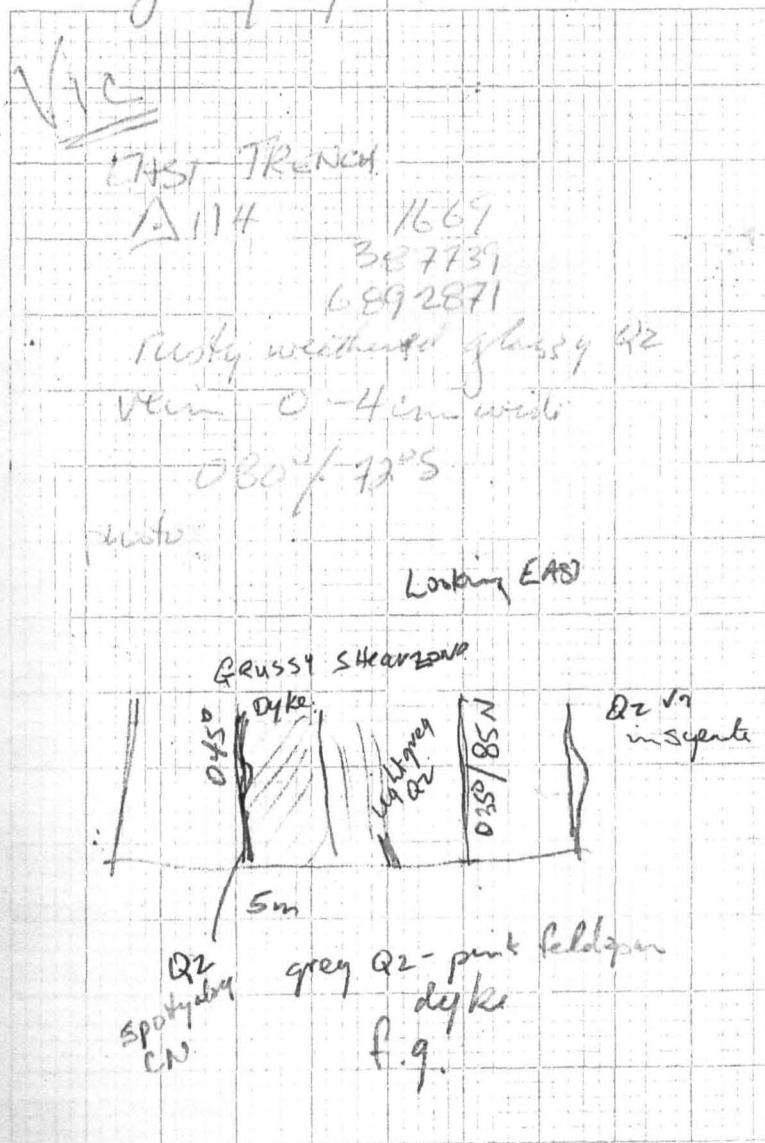 VIC
TRENCH
114 1669
387739
6892871
rusty weathered glassy Qz
vein 0-4 cm wide
080°/72°S
photo
Looking EAST
Grussy Shearzone
Dyke
045°
light grey
Qz
035°/85N
Qz Vn
in syenite
5m
Qz
spotty along
CN
grey Qz-pink feldspar
dyke
f.g.